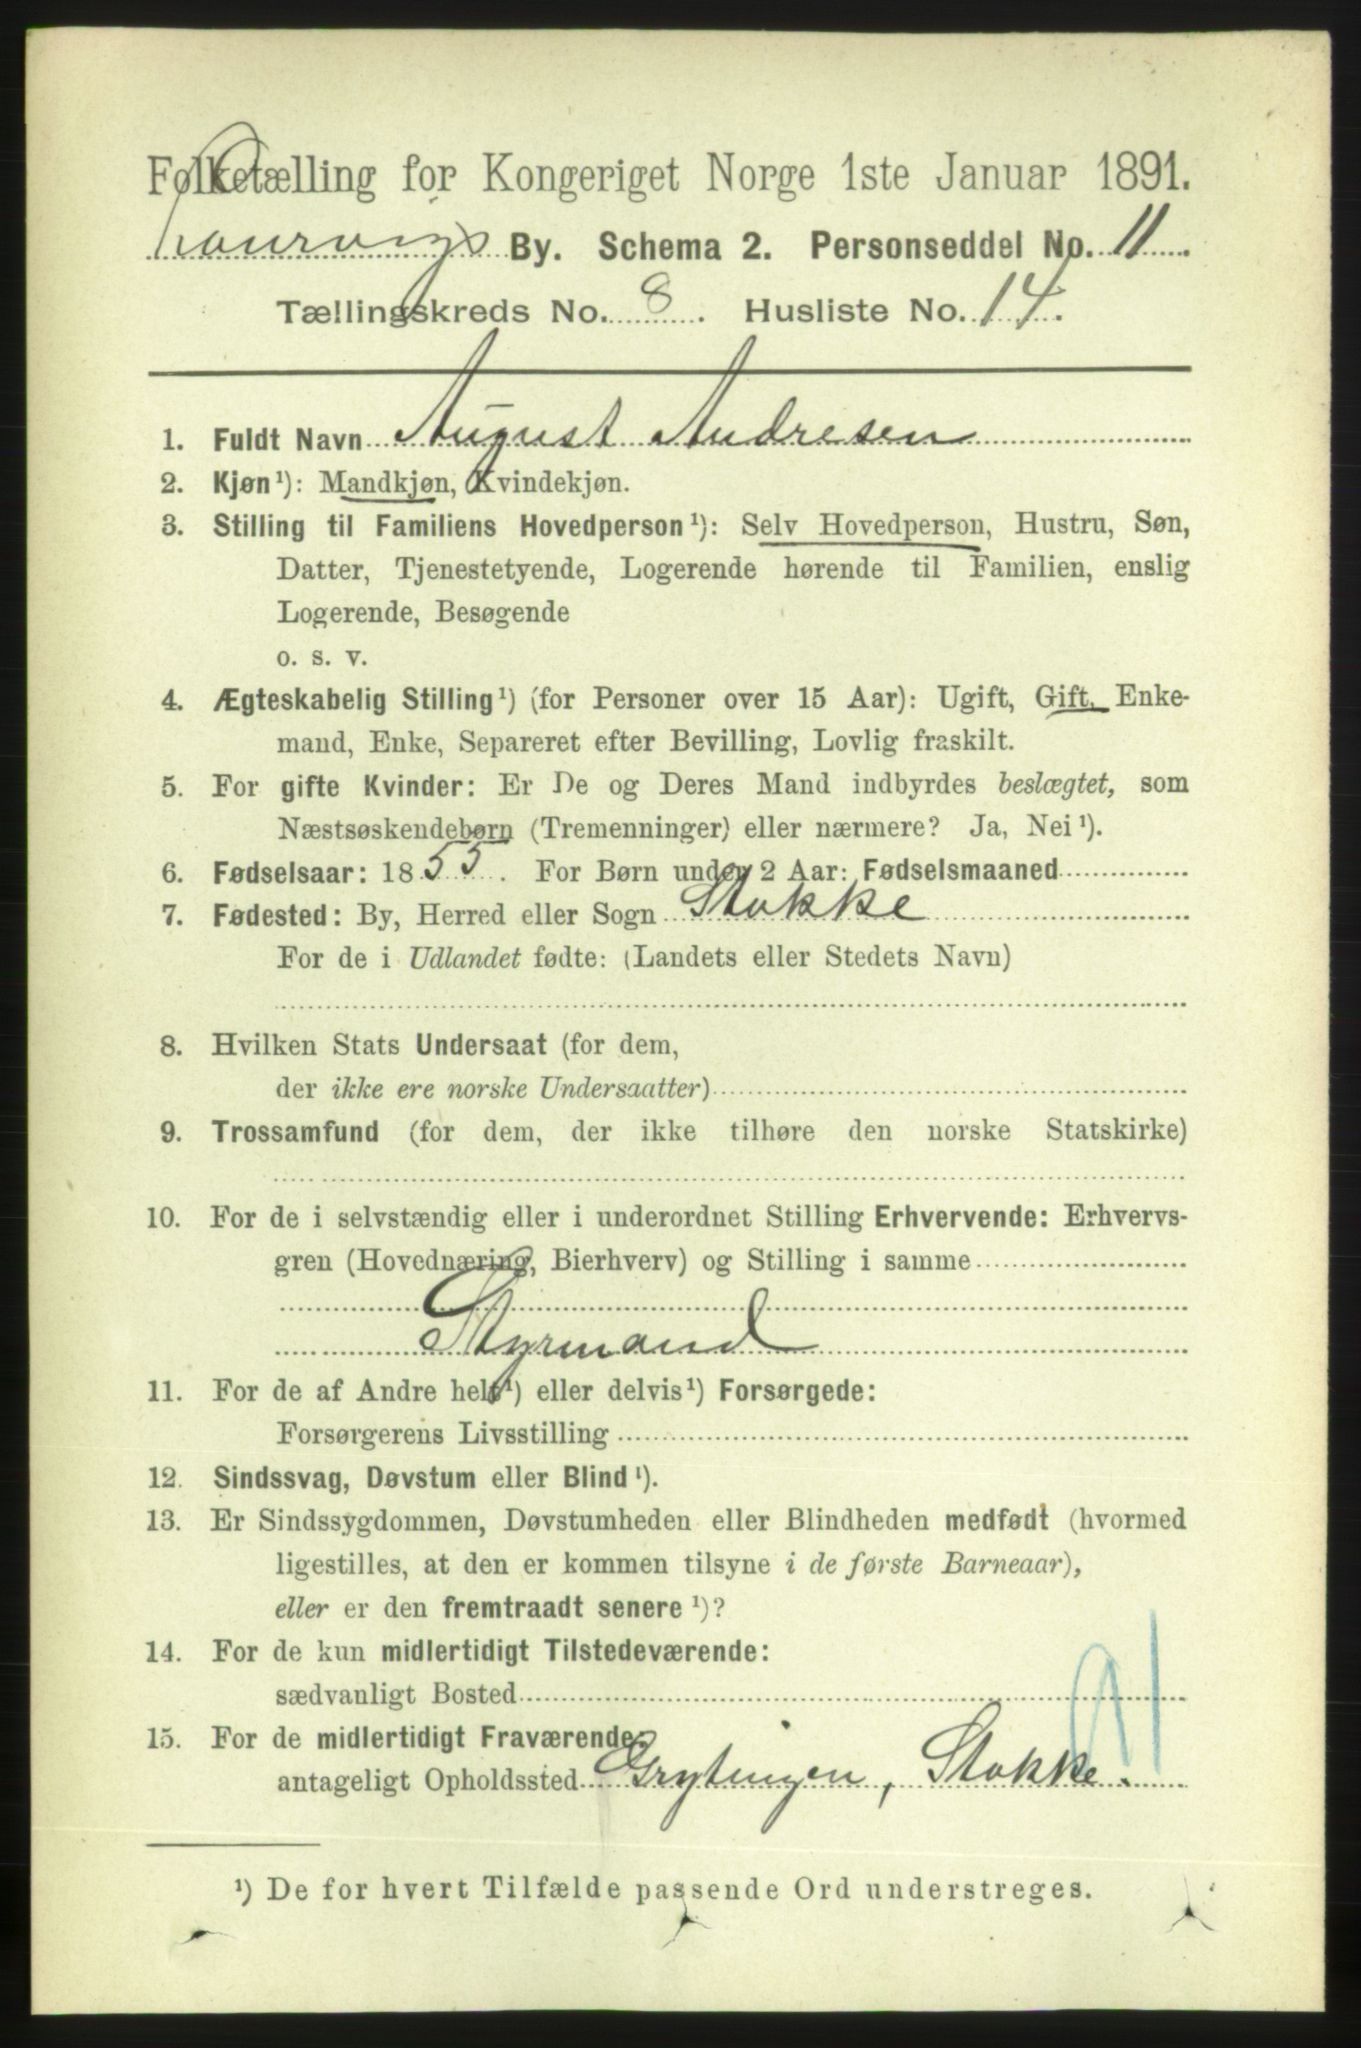 Folketælling for Kongeriget Norge 1ste Januar 1891.
Laurvigs By. Schema 2. Personseddel No. 11.
Tællingskreds No. 8. Husliste No. 14.
1. Fuldt Navn August Andresen
2. Kjøn¹): Mandkjøn, Kvindekjøn.
3. Stilling til Familiens Hovedperson¹): Selv Hovedperson, Hustru, Søn,
Datter, Tjenestetyende, Logerende hørende til Familien, enslig
Logerende, Besøgende
o. s. v.
4. Ægteskabelig Stilling¹) (for Personer over 15 Aar): Ugift, Gift, Enke-
mand, Enke, Separeret efter Bevilling, Lovlig fraskilt.
5. For gifte Kvinder: Er De og Deres Mand indbyrdes beslægtet, som
Næstsøskendebørn (Tremenninger) eller nærmere? Ja, Nei¹).
6. Fødselsaar: 1855. For Børn under 2 Aar: Fødselsmaaned
7. Fødested: By, Herred eller Sogn Stokke
For de i Udlandet fødte: (Landets eller Stedets Navn)
8. Hvilken Stats Undersaat (for dem,
der ikke ere norske Undersaatter)
9. Trossamfund (for dem, der ikke tilhøre den norske Statskirke)
10. For de i selvstændig eller i underordnet Stilling Erhvervende: Erhvervs-
gren (Hovednæring, Bierhverv) og Stilling i samme
Styrmand
11. For de af Andre helt¹) eller delvis¹) Forsørgede:
Forsørgerens Livsstilling
12. Sindssvag, Døvstum eller Blind¹).
13. Er Sindssygdommen, Døvstumheden eller Blindheden medfødt (hvormed
ligestilles, at den er kommen tilsyne i de første Barneaar),
eller er den fremtraadt senere¹)?
14. For de kun midlertidigt Tilstedeværende:
sædvanligt Bosted
15. For de midlertidigt Fraværende:
antageligt Opholdssted Grytingen, Stokke.
¹) De for hvert Tilfælde passende Ord understreges.